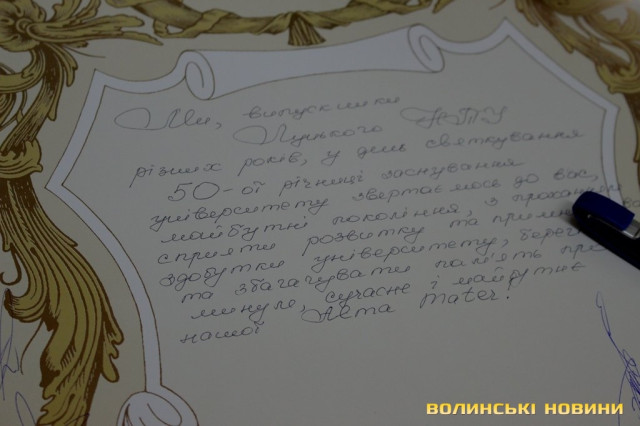 Ми, випускники
Луцького НТУ
різних років, у день святкування
50-ої річниці заснування
університету звертаємось до вас,
майбутні покоління, з проханням
сприяти розвитку та
здобутки університету,
та збагачувати пам'ять про
минуле, сучасне і майбутнє
нашої Alma mater.
ВОЛИНСЬКІ НОВИНИ